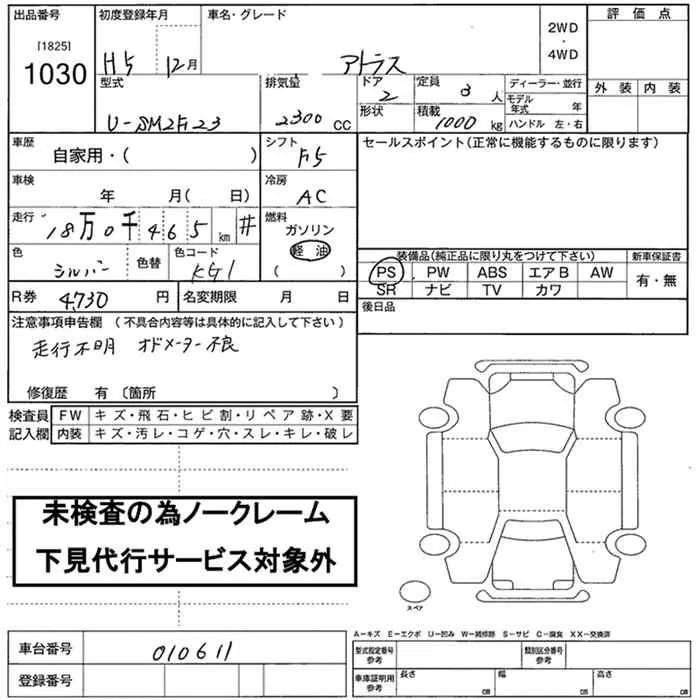 出品番号 初度登録年月 車名・グレード 評価点
[1825] 2WD
1030 H5 12月 アトラス ・
4WD
型式 排気量 ドア 定員 ディーラー・並行 外装 内装
2 3 人 モデル年式 年
U-SM2F23 2300 CC 形状 積載 1000 kg ハンドル 左・右
車歴 シフト セールスポイント(正常に機能するものに限ります)
自家用・( ) F5
車検 冷房
年 月( 日) AC
走行 燃料
18万0千465 km # ガソリン
色 色替 色コード 軽油 装備品(純正品に限り丸をつけて下さい) 新車保証書
シルバー KG1 ( ) PS PW ABS エアB AW 有・無
R券 4,730 円 名変期限 月 日 SR ナビ TV カワ
注意事項申告欄 (不具合内容等は具体的に記入して下さい) 後日品
走行不明 オドメーター不良
修復歴 有 〔箇所 〕
検査員 FW キズ・飛石・ヒビ割・リペア跡・X要
記入欄 内装 キズ・汚レ・コゲ・穴・スレ・キレ・破レ
未検査の為ノークレーム
下見代行サービス対象外
スペア
A-キズ E-エクボ U-凹み W-補修跡 S-サビ C-腐食 XX-交換済
車台番号 010611 型式指定番号 参考 類別区分番号 参考
登録番号 車庫証明用 参考 長さ cm 幅 cm 高さ cm